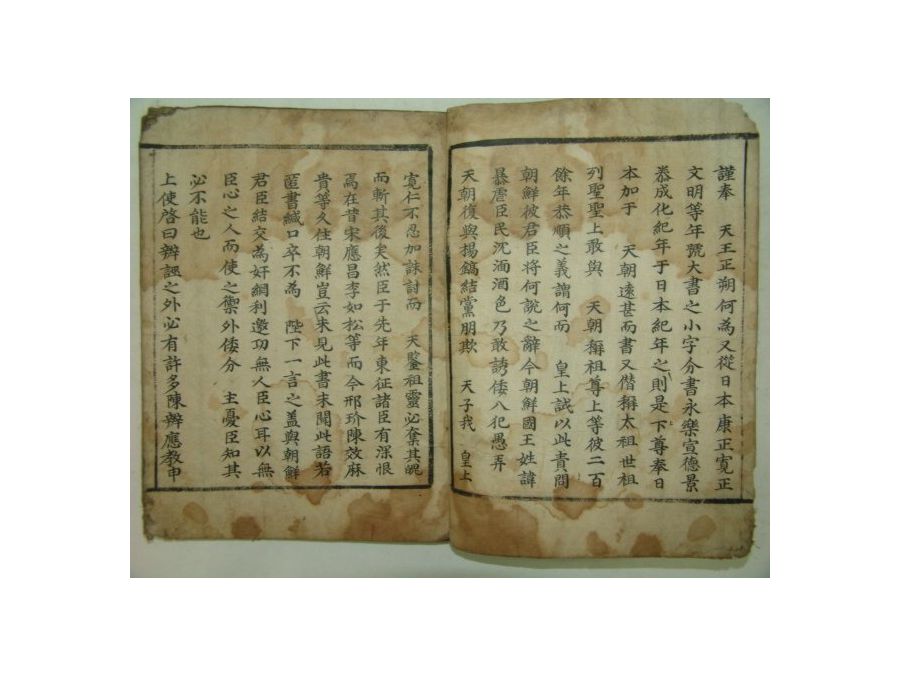 謹奉 天王正朔何為又從日本康正寬正
文明等年號大書之小字分書永樂宣德景
泰成化紀年于日本紀年之則是下尊奉日
本加于 天朝遠甚而書又僭稱太祖世祖
列聖聖上敢與 天朝稱祖尊上等彼二百
餘年恭順之義謂何而 皇上試以此責問
朝鮮彼君臣將何說之辭今朝鮮國王姓諱
暴虐臣民沉湎酒色乃敢誘倭入犯愚弄
天朝復與楊鎬結黨朋欺 天子我 皇上
寬仁不忍加誅討而 天鑒祖靈必棄其魄
而斬其後矣然臣于先年東征諸臣有深恨
焉在昔宋應昌李如松等而今邢玠陳效麻
貴等久住朝鮮豈云未見此書未聞此語若
匿書緘口卒不為 陛下一言之盖與朝鮮
君臣結交為奸網利邀功無人臣心耳以無
臣心之人而使之禦外倭分 主憂臣知其
必不能也
上使啓曰辨誣之外必有許多陳辨應教申